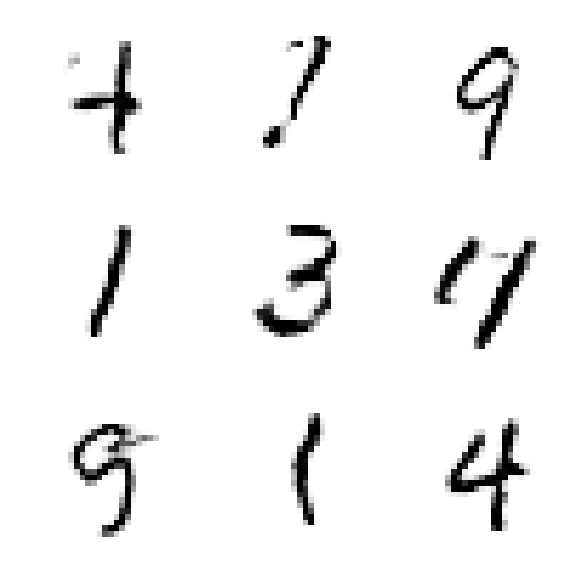 4 7 9
1 3
9 1 4